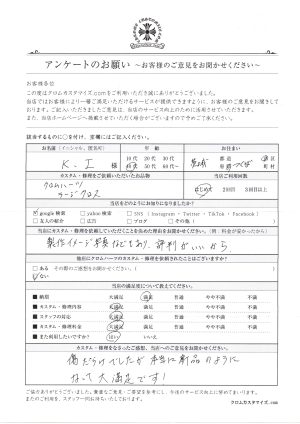 アンケートのお願い ～お客様のご意見をお聞かせください～
お客様各位
この度はクロムカスタマイズ.comをご利用いただき誠にありがとうございました。
当店ではお客様により一層ご満足いただけるサービスが提供できますように、お客様のご意見をお聞きして
おります。ご記入いただきましたご意見は、当店のサービス向上のために活用させていただきます。
また、当店ホームページへ掲載させていただく場合がございますので予めご了承ください。
該当するものに○を付け、空欄にはご記入ください。
お名前（イニシャル、匿名可） 年齢 お住まい
K. I 様
10代 20代 30代
40代 50代 60代～
都道府県
区市町村
カスタム・修理をご依頼いただいたお品物 当店のご利用
クロムハーツ
ラージクロス
はじめて 2回目 3回目以上
当店をどのようにお知りになりましたか？
google 検索 yahoo 検索 SNS（Instagram・Twitter・TikTok・Facebook）
友人の紹介 広告 ブログ
当店にカスタム・修理をご依頼していただくことを決めた理由をお聞かせください。（例：料金が安かったから）
製作イメージ写真などもあり、評判がいいから
他店にクロムハーツのカスタム・修理を依頼されたことはございますか？
ある その際のご感想をお聞かせください。
ない
当店の満足度について教えてください。
■ 納期 大満足 満足 普通 やや不満 不満
■ カスタム・修理内容 大満足 満足 普通 やや不満 不満
■ スタッフの対応 大満足 満足 普通 やや不満 不満
■ カスタム・修理料金 大満足 満足 普通 やや不満 不満
■ また利用したいですか？ はい いいえ
カスタム・修理をなさったご感想、当店へのご意見をお聞かせください。
傷だらけでしたが本当に新品のように
なって大満足です！
ご協力ありがとうございました。貴重なご意見・ご要望を参考にし、今後のサービス向上に努めてまいります。
またのご利用を、スタッフ一同お待ちいたしております。
クロムカスタマイズ.com